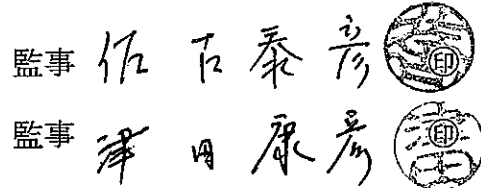 監事 佐古泰彦 印
監事 津田康彦 印